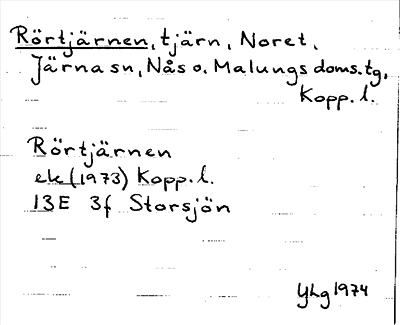 Rörtjärnen, tjärn, Noret,
Järna sn, Nås o. Malungs doms. tg,
Kopp. l.
Rörtjärnen
ek (1973) Kopp. l.
13E 3f Storsjön
YLg 1974